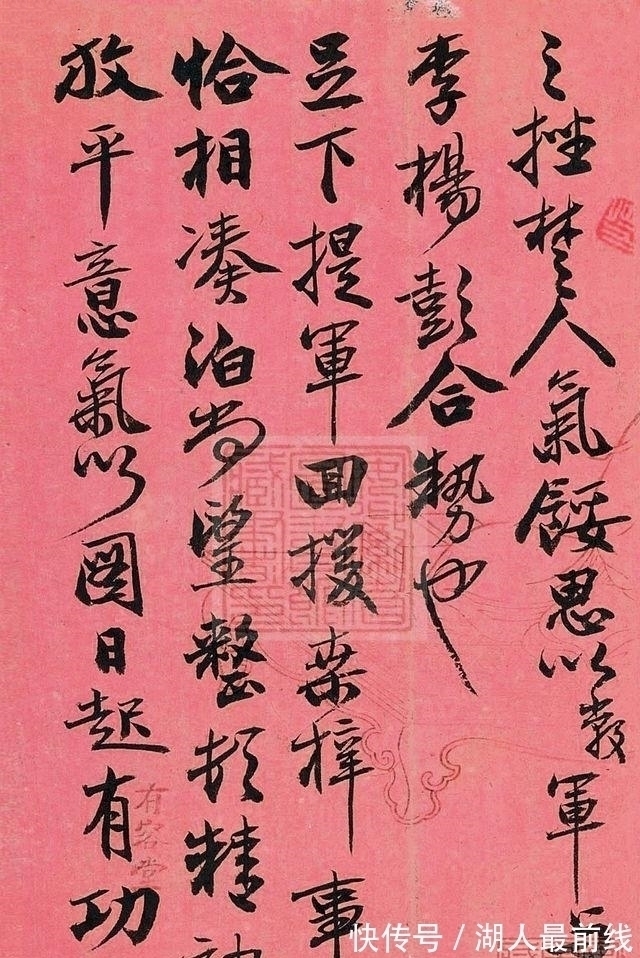 之挫楚人氣餒思以數軍
李楊彭合勢也
足下提軍回援桑梓事
恰相湊泊尚望整頓精神
放平意氣以圖日起有功
有容堂
快传号/湖人最前线